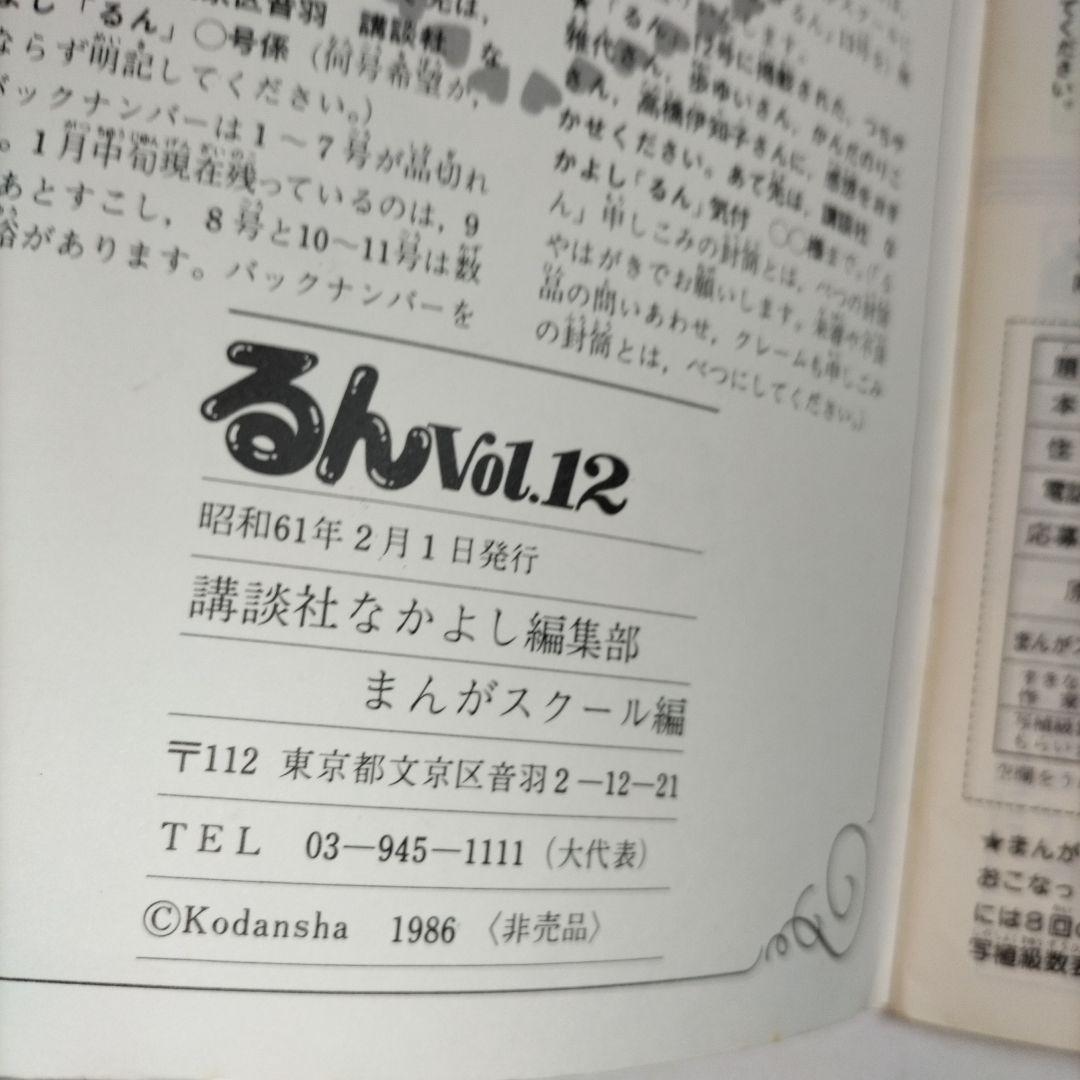 先は，
区音羽 講談社 な
よし「るん」○号係（何号希望か，
ならず明記してください。）
バックナンバーは1～7号が品切れ
。1月中旬現在残っているのは，9
あとすこし，8号と10～11号は数
があります。バックナンバーを
号に掲載された，つちや
雅代さん，歩ゆいさん，かんだのりこ
さん，高橋伊知子さんに，感想を
かせください。あて先は，講談社 な
かよし「るん」気付 ○○様まで。
ん」申しこみの封筒とは，べつの封筒
やはがきでお願いします。
品の問いあわせ，クレームも申しこみ
の封筒とは，べつにしてください。）
るんVol.12
昭和61年2月1日発行
講談社なかよし編集部
まんがスクール編
〒112 東京都文京区音羽2－12－21
TEL 03―945―1111（大代表）
©Kodansha 1986〈非売品〉
てください。
本
住
電話
応募
まんがス
★まんが
おこなっ
には8回の
写植級数